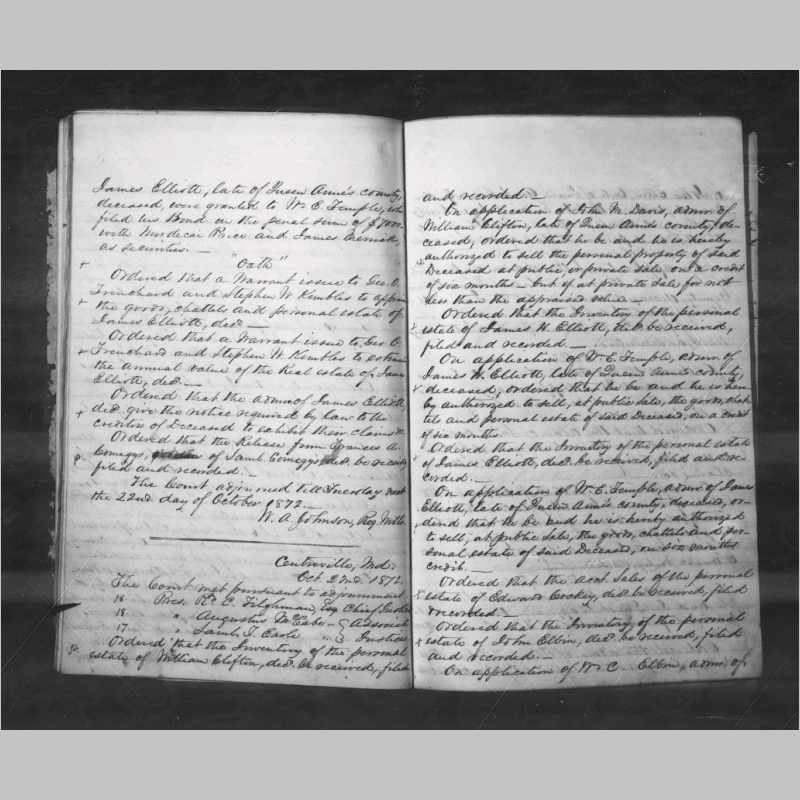 James Elliott, late of Queen Anne's county,
deceased, were granted to Wm E. Temple, who
filed his Bond in the penal sum of $7000.
with Mordecai Price and James
as securities. —
"Oath"
Ordered that a Warrant issue to Geo. O.
Trenchard and Stephen W. Kembles to
the goods, chattels and personal estate of
James Elliott, decd. —
Ordered that a Warrant issue to Geo. O.
Trenchard and Stephen W. Kembles to
the annual value of the Real estate of
Elliott, decd. —
Ordered that the admr. of James Elliott,
decd. give the notice required by law to the
creditors of Deceased to exhibit their claims &c.
Ordered that the Release from Frances A.
Comegys, of Saml. Comegys, decd. be
filed and recorded. —
The Court adjourned till Tuesday next
the 22nd day of October 1872. —
W. A. Johnson, Reg. Wills
Centreville, Md.
Oct. 22nd. 1872.
The Court met pursuant to adjournment
18 Pres. R. C. Tilghman, Esq Chief
18. " Augustus McCabe - Associate
17. — " Saml. T. Earle " Justices
Ordered that the Inventory of the personal
estate of William Clifton, decd. be received, filed
and recorded.
On application of John M. Davis, admr. of
William Clifton, late of Queen Ann's county, de-
ceased, ordered that he be and he is hereby
authorized to sell the personal property of said
Deceased at public or private sale, on a credit
of six months — but if at private sale, for not
less than the appraised value. —
Ordered that the Inventory of the personal
estate of James H. Elliott, decd. be received,
filed and recorded. —
On application of Wm. E. Temple, admr. of
James H. Elliott, late of Queen Ann's county,
deceased, ordered that he be and he is here-
by authorized to sell, at public sale, the goods, chat-
tels and personal estate of said Deceased, on a credit
of six months.
Ordered that the Inventory of the personal estate
of James Elliott, decd. be received, filed and re-
corded. —
On application of W. E. Temple, admr. of James
Elliott, late of Queen Ann's county, deceased, or-
dered that he be and he is hereby authorized
to sell, at public sale, the goods, chattels and per-
sonal estate of said Deceased, on six months
credit. —
Ordered that the acct. Sales of the personal
estate of Edward Cockey, decd. be received, filed
& recorded. —
Ordered that the Inventory of the personal
estate of John Elbin, decd. be received, filed
and recorded. —
On application of Wm C. Elbin, admr. of